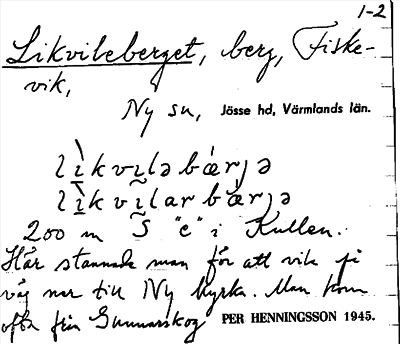 1-2
Likvileberget, berg, Fiske-
vik,
Ny sn, Jösse hd, Värmlands län.
lìkvilə bærjə
lìkvilar bærjə
200 m S "e" i Kullen.
Här stannade man för att vila på
väg ner till Ny kyrka. Man kom
ofta från Gunnarskog PER HENNINGSSON 1945.